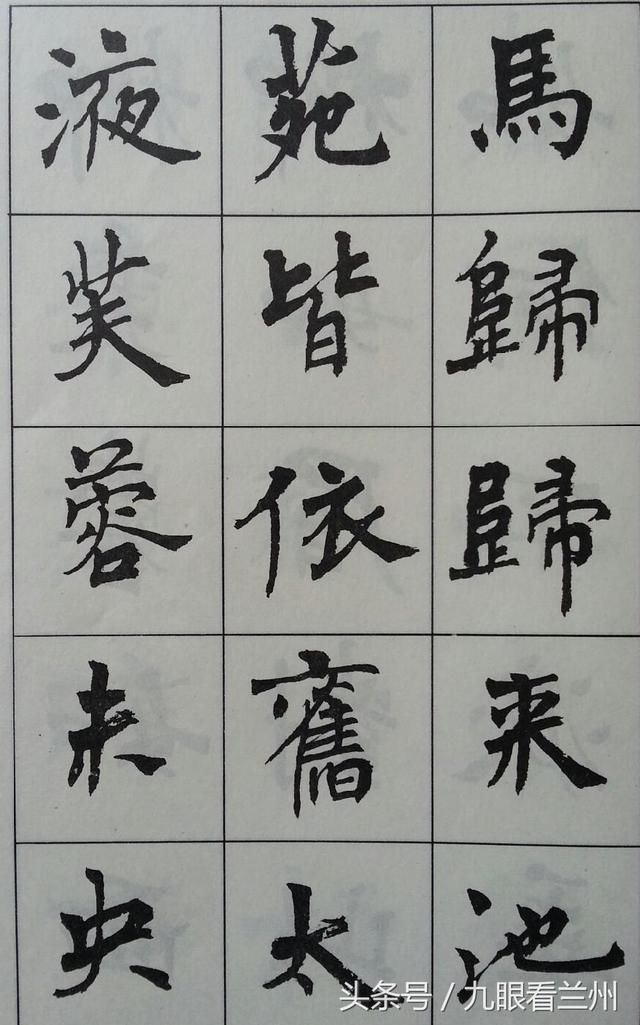 馬歸歸来池
苑皆依舊太
液芙蓉未央
头条号 / 九眼看兰州